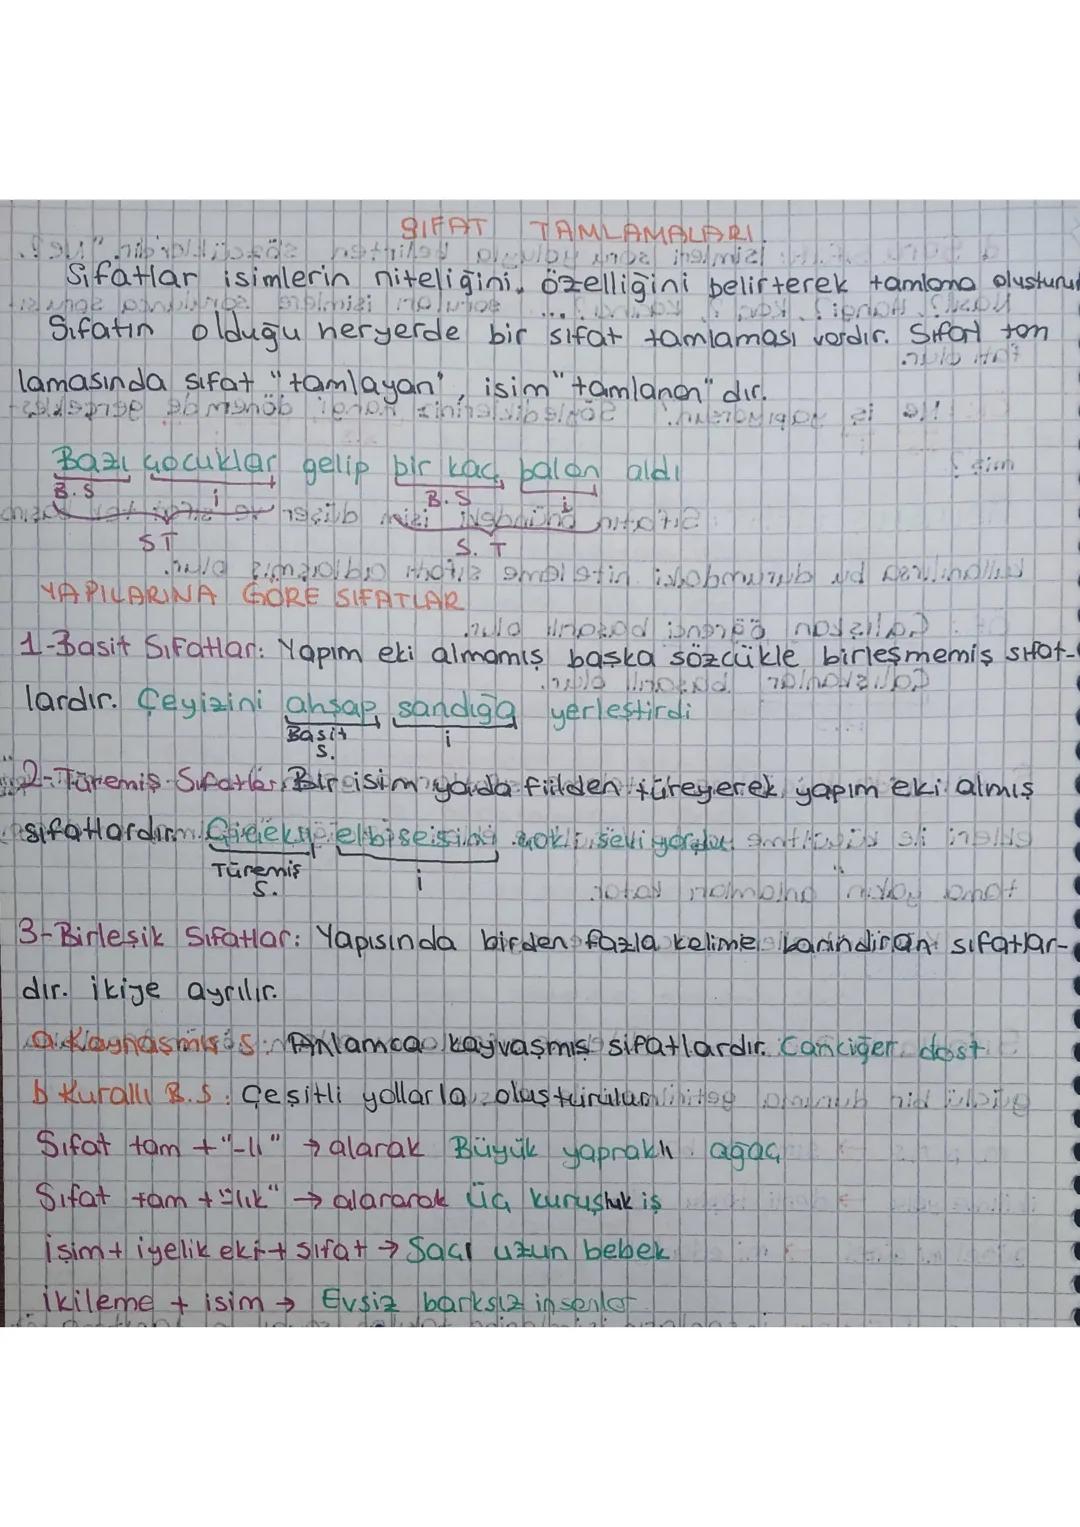 SIFAT TAMLAMALARI
Sıfatlar isimlerin niteliğini, özelliğini belirterek tamlama oluşturur
Sıfatın olduğu heryerde bir sıfat tamlaması vardır. Sıfat tam
lamasında sıfat "tamlayan", isim "tamlanan" dır.
Bazı çocuklar gelip bir kaç balon aldı
B.S i B.S i
ST S. T
YAPILARINA GÖRE SIFATLAR
1-Basit Sıfatlar: Yapım eki almamış başka sözcükle birleşmemiş sıfat-
lardır. Çeyizini ahşap sandığa yerleştirdi
Basit i
S.
2-Türemiş Sıfatlar Bir isim yada fiilden türeyerek yapım eki almış
sıfatlardır. Çiçekli elbisesini çok seviyordu
Türemiş i
S.
3-Birleşik Sıfatlar: Yapısında birden fazla kelime barındıran sıfatlar-
dır. İkiye ayrılır.
a. Kaynaşmış S: Anlamca kayvaşmış sıfatlardır. Canciğer dost
b Kurallı B.S: Çeşitli yollarla oluşturulur
Sıfat tam + "-lı" → alarak Büyük yapraklı ağaç
Sıfat tam + "lık" → alararak üç kuruşluk iş
isim + iyelik eki + sıfat → Saçı uzun bebek
ikileme + isim → Evsiz barksız insanlar